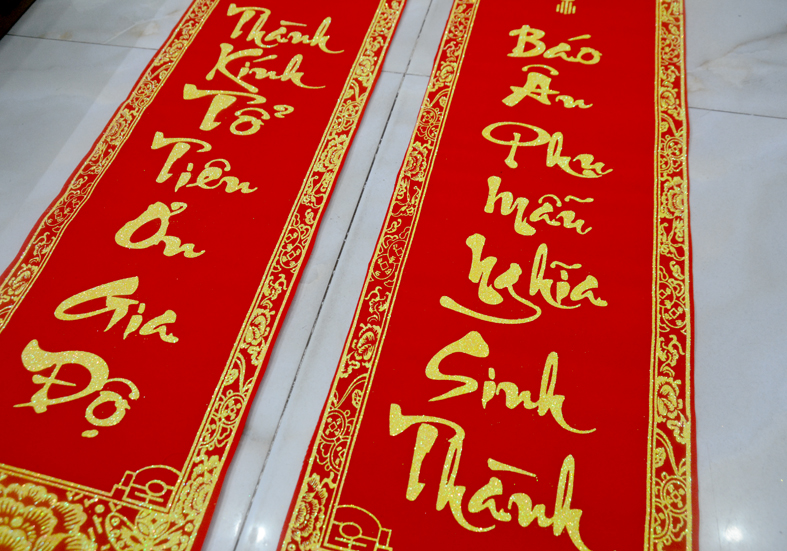 Thành
Kính
Tổ
Tiên
Ơn
Gia
Độ
Báo
Ân
Phụ
Mẫu
Nghĩa
Sinh
Thành